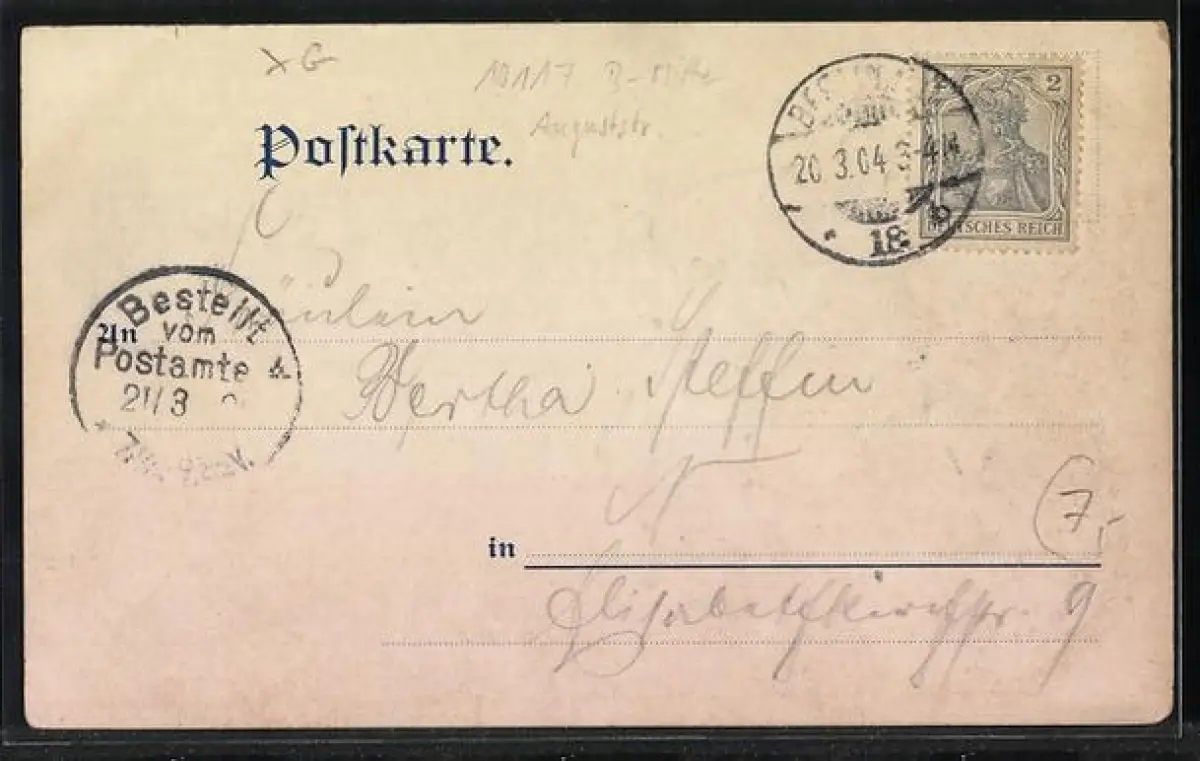 XG
10117 B-Mitte
Auguststr.
Postkarte.
20.3.04 3-4N
18 b
2
DEUTSCHES REICH
Bestellt
vom
Postamte 4
21/3
An
Fräulein
Bertha Steffin
N
(7,-
in
Elisabethkirchstr. 9